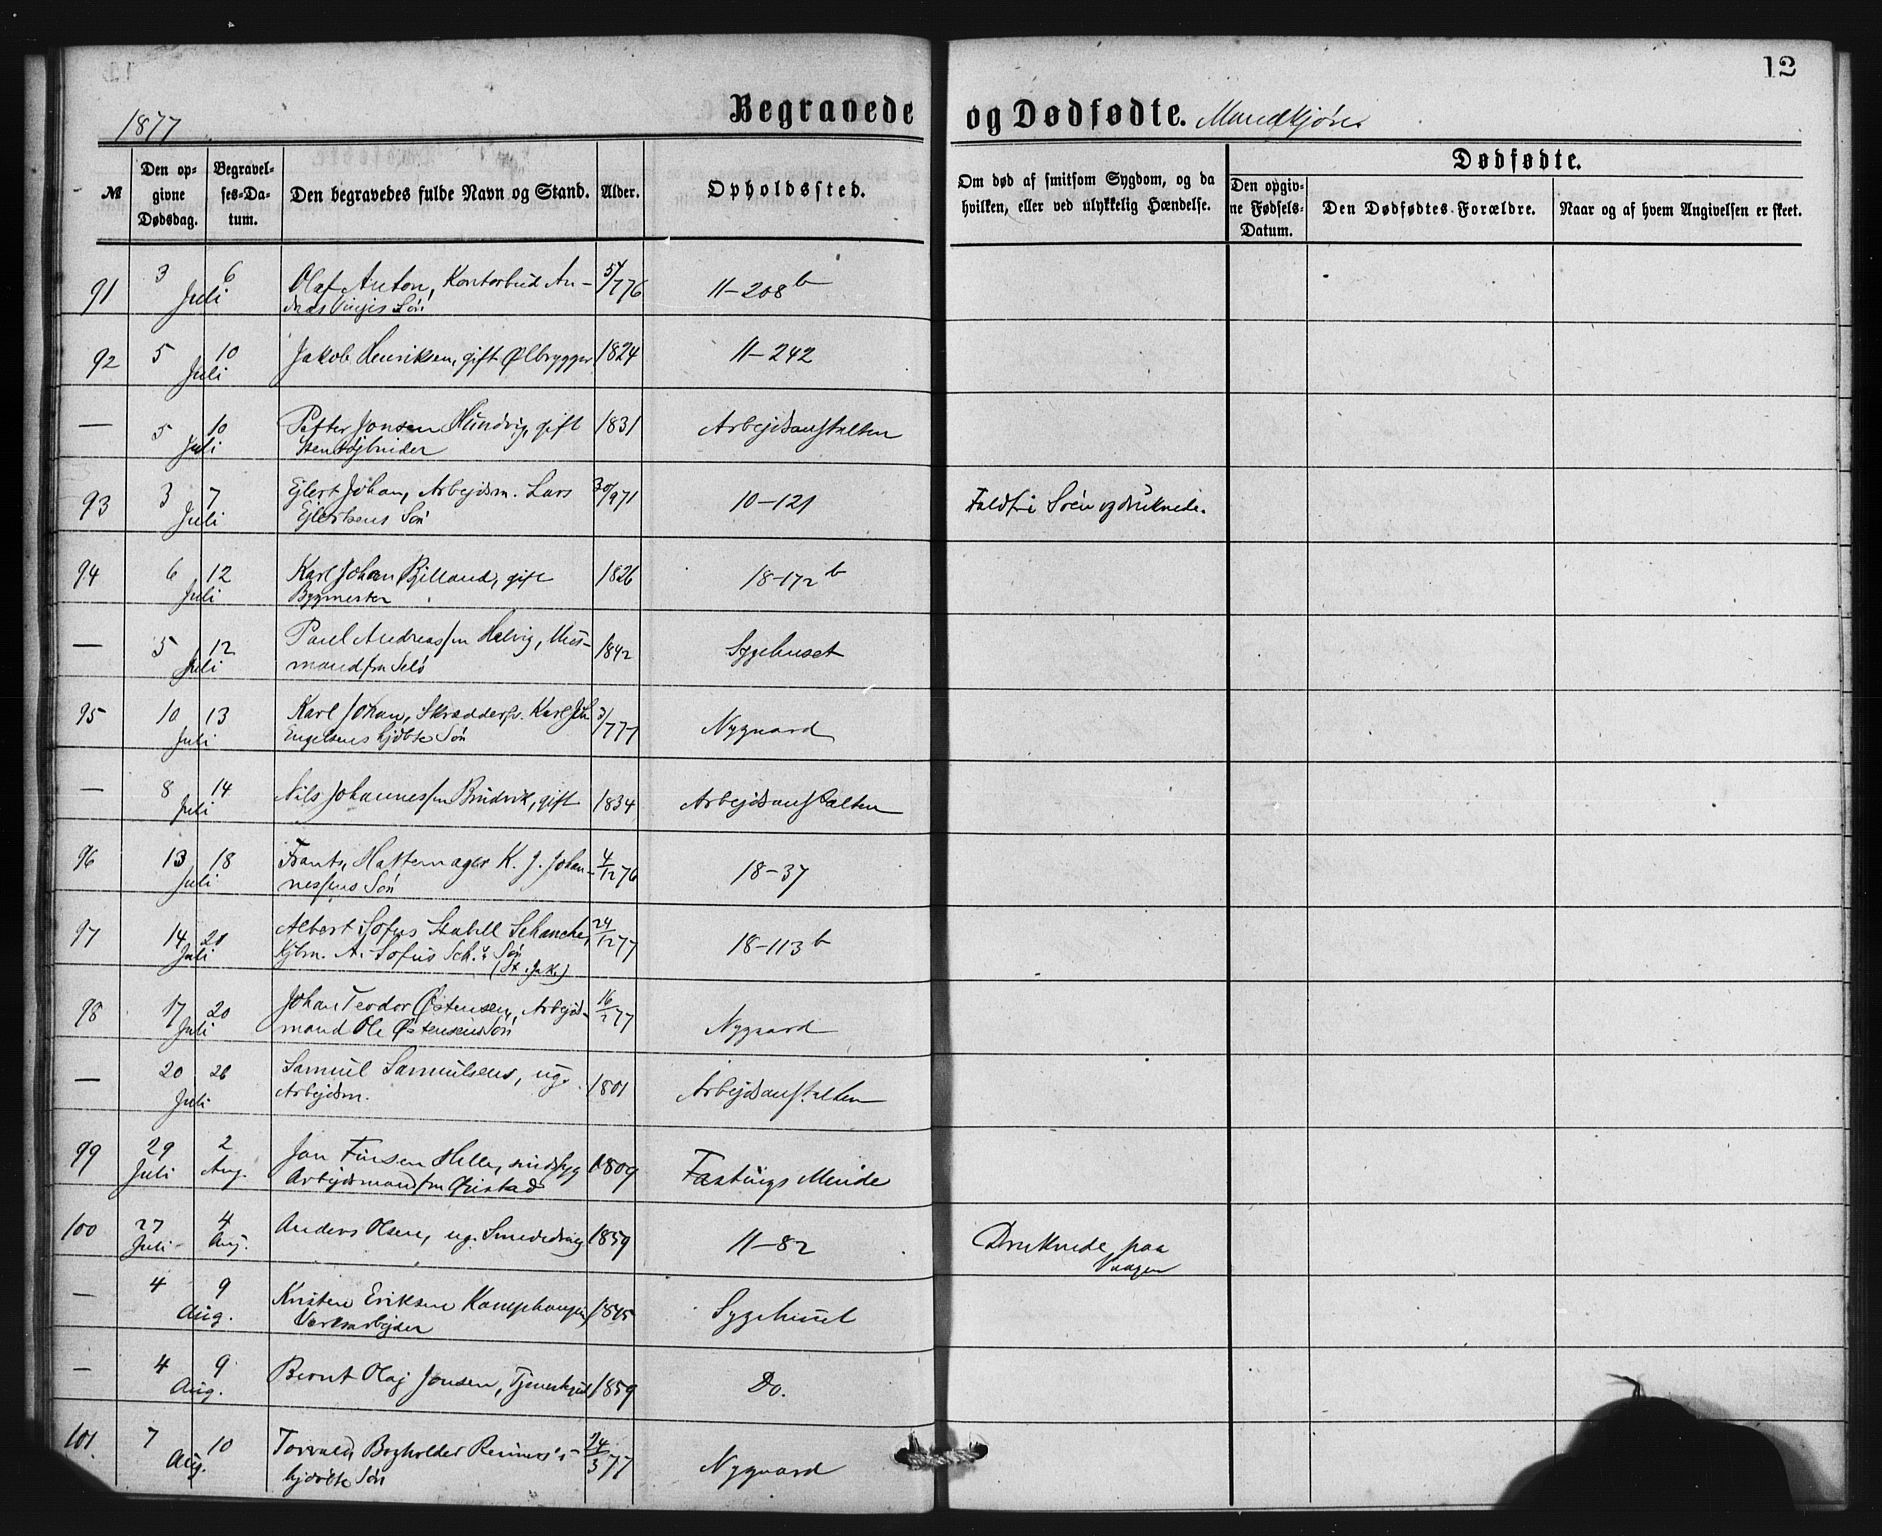 12
1877
Begravede og Dødfødte. Mandkjøn.
№
Den opgivne Dødsdag.
Begravelses-Datum.
Den begravedes fulde Navn og Stand.
Alder.
Opholdssted.
Om død af smitsom Sygdom, og da hvilken, eller ved ulykkelig Hændelse.
Dødfødte.
Den opgivne Fødsels-Datum.
Den Dødfødtes Forældre.
Naar og af hvem Angivelsen er skeet.
91 3 6 Juli Olaf Anton, Kontorbud An- 5/776 11-208 b
Søn
92 5 10 Juli Jakob Henriksen, gift Ølbrygger 1824 11-242
— 5 10 Juli Petter Jonsen Hundvig, gift 1831 Arbejdsanstalten
93 3 7 Juli Ejlert Johan, Arbejdsm. Lars 30/971 10-121 Faldt i Søen og druknede.
Ejlertsens Søn
94 6 12 Juli Karl Johan Bjelland, gift 1826 18-172 b
Bygmester
— 5 12 Juli Paul Andreassen Helvig, Hus- 1842 Sygehuset
mand fra Selø
95 10 13 Juli Karl Johan, Skræddersv. Karl Joh. 3/777 Nygaard
Engelsens hjdøbte Søn
— 8 14 Juli Nils Johannessen Bruvik, gift 1834 Arbejdsanstalten
96 13 18 Juli Frants, Hattemager K. J. Johan- 4/12 76 18-37
nessens Søn
97 14 20 Juli Albert Sofus Stabell Schanche, 24/12 77 18-113 b
Kjbm. A. Sofus Sch.'s Søn
(St. Jak.)
98 17 20 Juli Johan Teodor Østensen, Arbejds- 16/2 77 Nygaard
mand Ole Østensens Søn
— 20 26 Juli Samuel Samuelsens, ug. 1801 Arbejdsanstalten
Arbejdsm.
99 29 Juli 2 Aug. Jon Finsen Helle, sindssyg 1809 Fastings Minde
Arbejdsmand fra
100 27 Juli 4 Aug. Anders Olsen, ug. Smededreng 1859 11-82 Druknede paa
Vaagen
— 4 9 Aug. Kristen Eriksen Kamphaug, 1845 Sygehuset
Værksarbejder
— 4 9 Aug. Bernt Olaj Jonsen, 1859 Do.
101. 7 10 Aug. Torvald, Bogholder 24/3 77 Nygaard
hjdøbte Søn